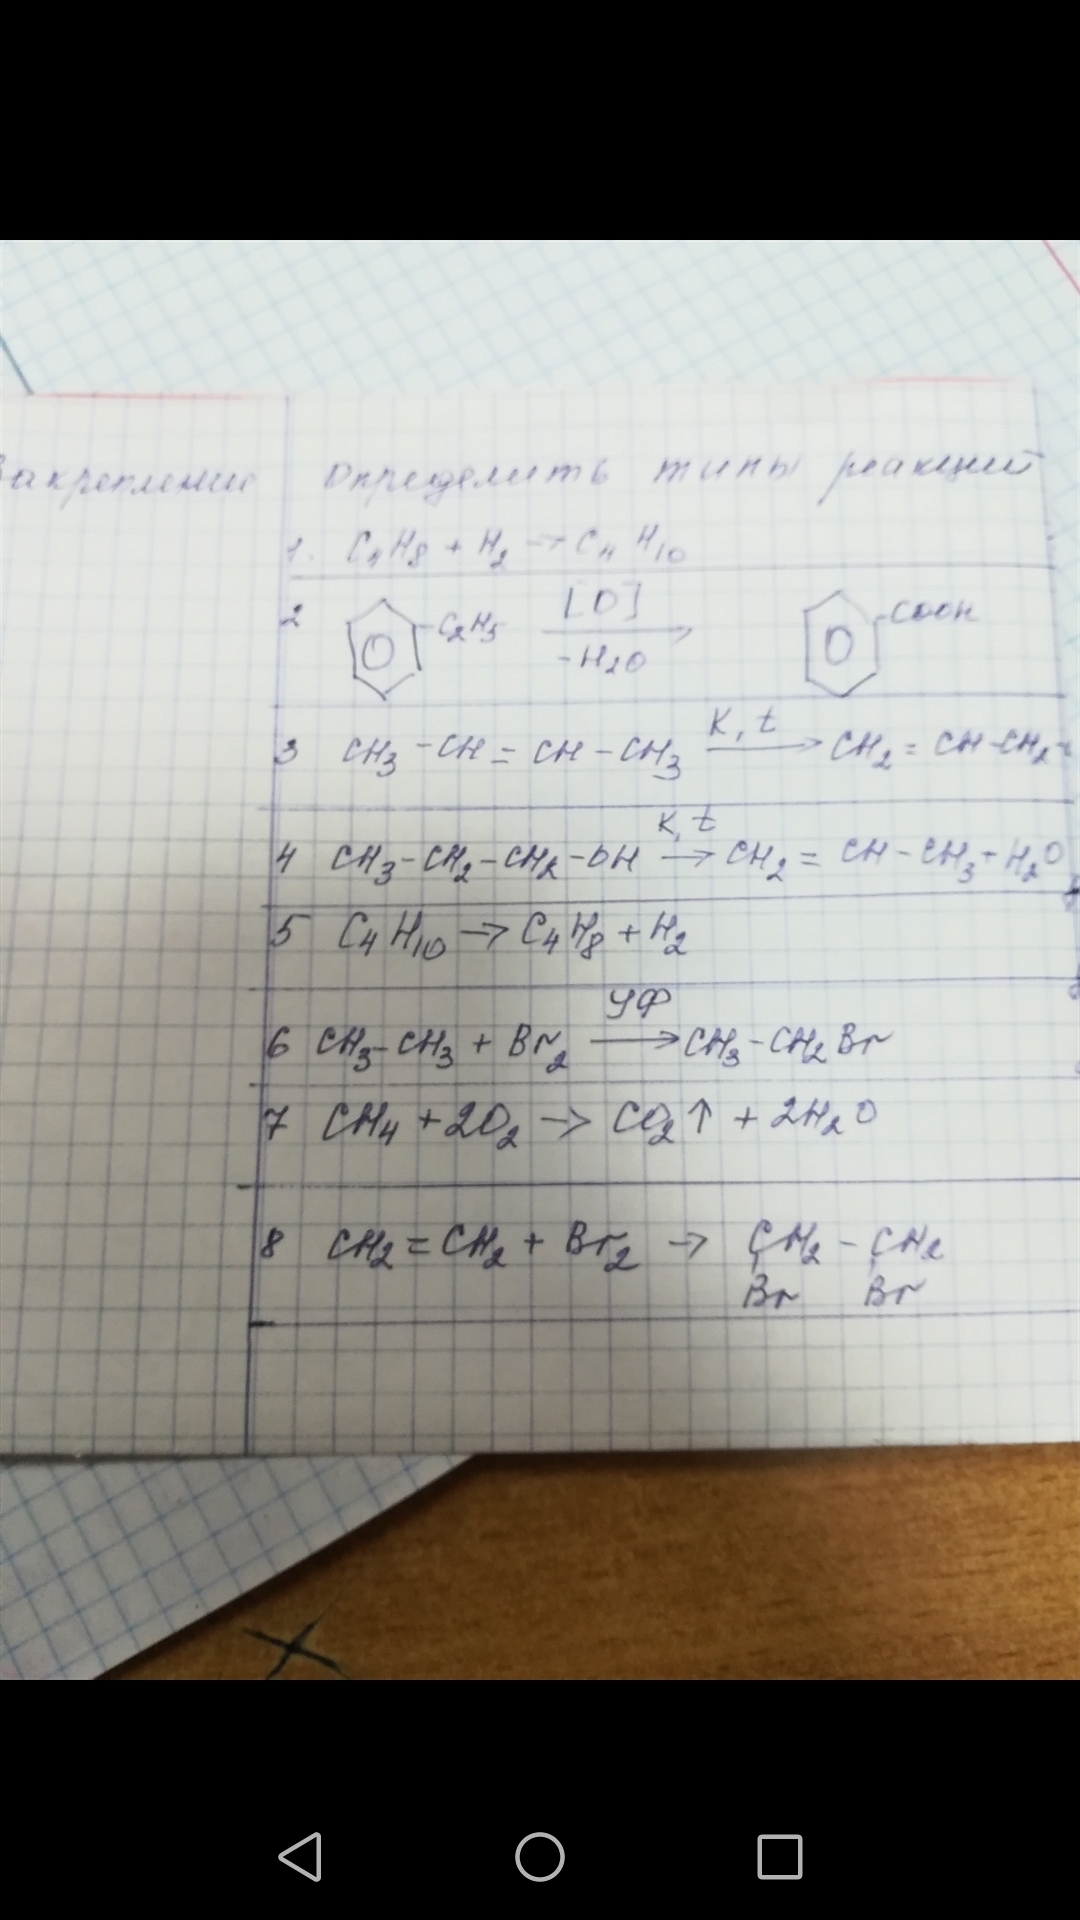 Закрепление Определить типы реакций
1. C₄H₈ + H₂ → C₄H₁₀
2 C₂H₅ [O] -H₂O COOH
3 CH₃-CH=CH-CH₃ K, t → CH₂=CH-CH₂-
4 CH₃-CH₂-CH₂-OH K, t → CH₂=CH-CH₃+H₂O
5 C₄H₁₀ → C₄H₈ + H₂
6 CH₃-CH₃ + Br₂ УФ → CH₃-CH₂Br
7 CH₄ + 2O₂ → CO₂↑ + 2H₂O
8 CH₂=CH₂ + Br₂ → CH₂-CH₂
Br Br